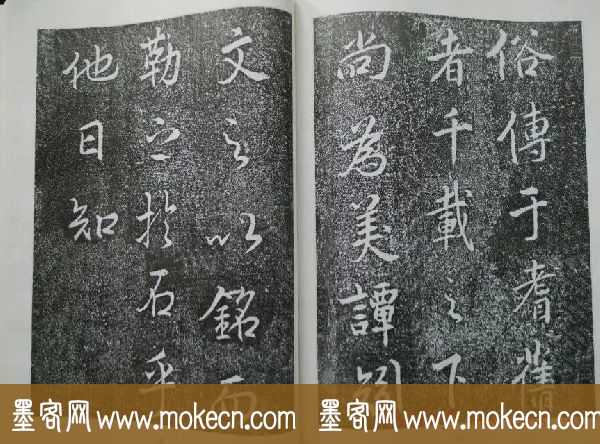 俗傳于耆舊
者千載之下
尚為美譚
文之以銘而
勒之於石乎
他日知
墨客网 www.mokecn.com
墨客网 www.mokecn.com